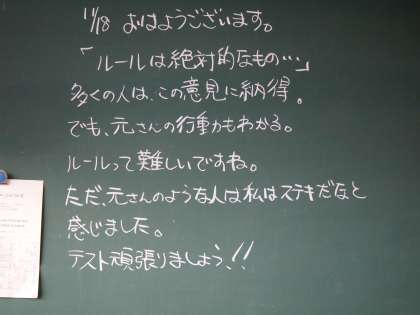 11/18 おはようございます。
「ルールは絶対的なもの…」
多くの人は、この意見に納得。
でも、元さんの行動力もわかる。
ルールって難しいですね。
ただ、元さんのような人は私はステキだなと
感じました。
テスト頑張りましょう!!